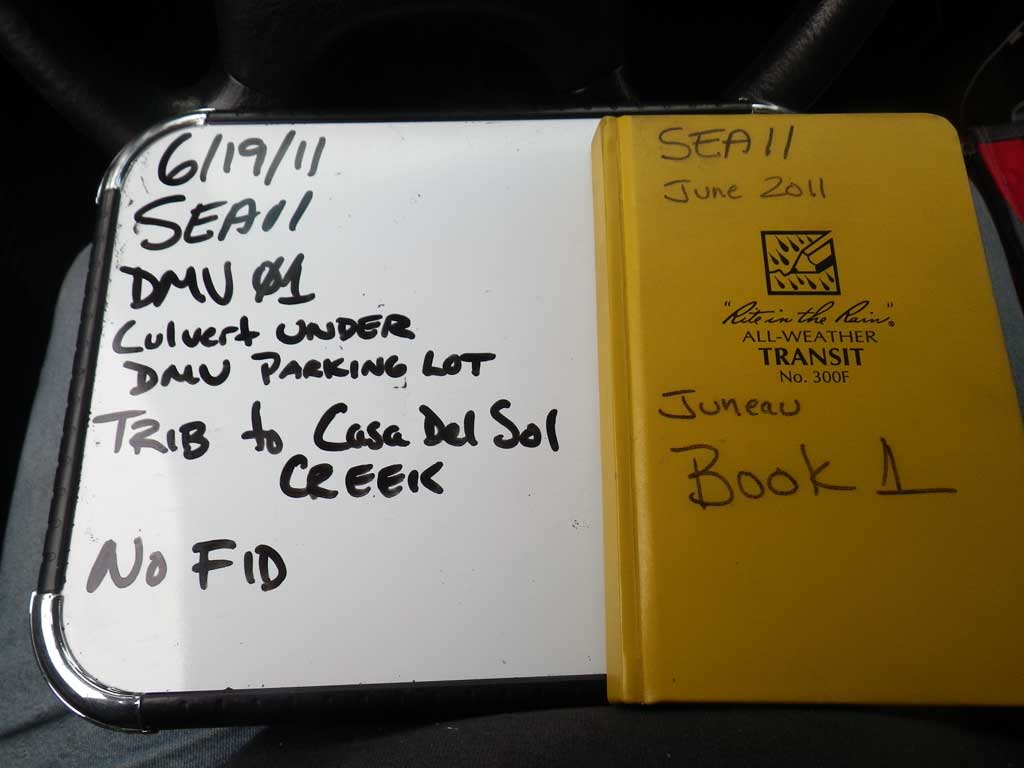 6/19/11
SEA11
DMV 01
Culvert UNDER
DMV PARKING LOT
TRIB to Casa Del Sol
CREEK
No FID
SEA11
June 2011
"Rite in the Rain"®
ALL-WEATHER
TRANSIT
No. 300F
Juneau
Book 1